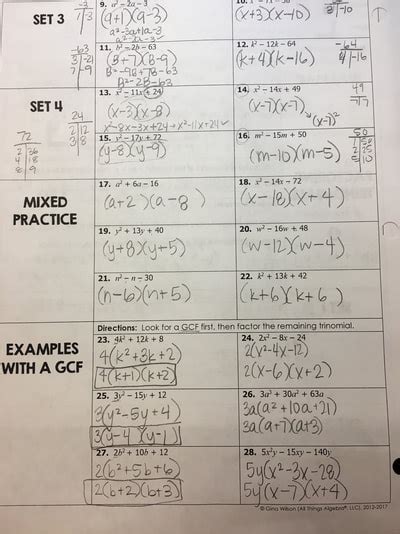 SET 3
-3
1 | -3
9. a² - 2a - 3
(a+1)(a-3)
a²-3a+1a-3
a²-2a-3
(x+3)(x-10)
3 | -10
-63
3 | -21
7 | -9
11. b² - 2b - 63
(B+7)(B-9)
B²-9B+7B-63
B²-2B-63
12. k² - 12k - 64
(k+4)(k-16)
-64
4 | -16
SET 4
24
2 | 12
3 | 8
13. x² - 11x + 24
(x-3)(x-8)
x²-8x-3x+24→x²-11x+24✓
14. x² - 14x + 49
(x-7)(x-7)
→(x-7)²
49
72
2 | 36
4 | 18
8 | 9
15. y² - 17y + 72
(y-8)(y-9)
16. m² - 15m + 50
(m-10)(m-5)
50
MIXED
PRACTICE
17. a² + 6a - 16
(a+2)(a-8)
18. x² - 14x - 72
(x-18)(x+4)
19. y² + 13y + 40
(y+8)(y+5)
20. w² - 16w + 48
(w-12)(w-4)
21. n² - n - 30
(n-6)(n+5)
22. k² + 13k + 42
(k+6)(k+6)
Directions: Look for a GCF first, then factor the remaining trinomial.
EXAMPLES
WITH A GCF
23. 4k² + 12k + 8
4(k²+3k+2)
4(k+1)(k+2)
24. 2x² - 8x - 24
2(x²-4x-12)
2(x-6)(x+2)
25. 3y² - 15y + 12
3(y²-5y+4)
3(y-4)(y-1)
26. 3a³ + 30a² + 63a
3a(a²+10a+21)
3a(a+7)(a+3)
27. 2b² + 10b + 12
2(b²+5b+6)
2(b+2)(b+3)
28. 5x²y - 15xy - 140y
5y(x²-3x-28)
5y(x-7)(x+4)
© Gina Wilson (All Things Algebra®, LLC), 2012-2017